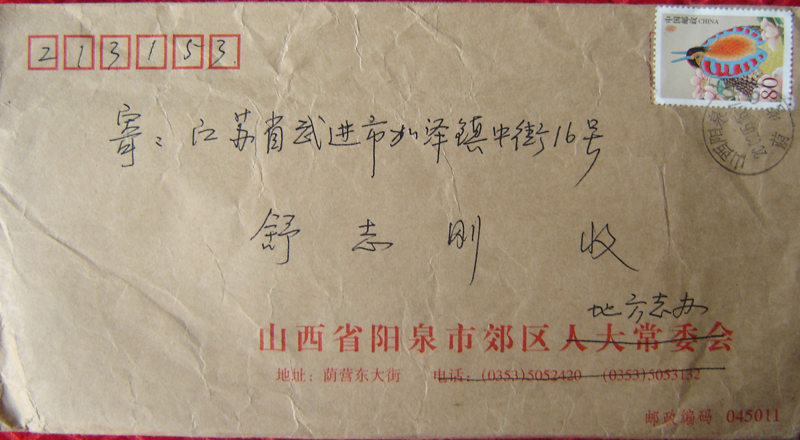 213153
中国邮政 CHINA
80
山西阳泉
寄：江苏省武进市加泽镇中街16号
舒志刚 收
地方志办
山西省阳泉市郊区人大常委会
地址：荫营东大街 电话：(0353)5052420 (0353)5053132
邮政编码 045011